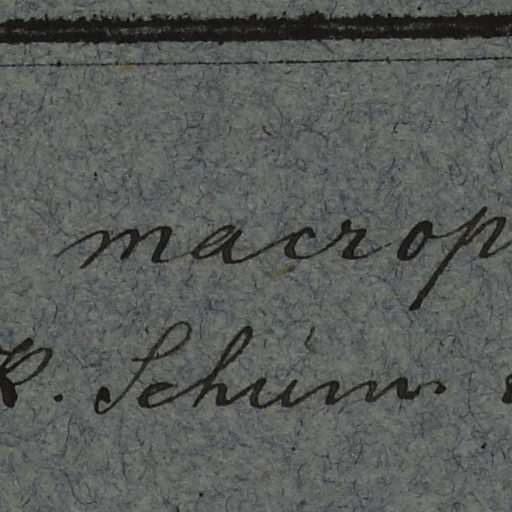 macrop
K. Schum.